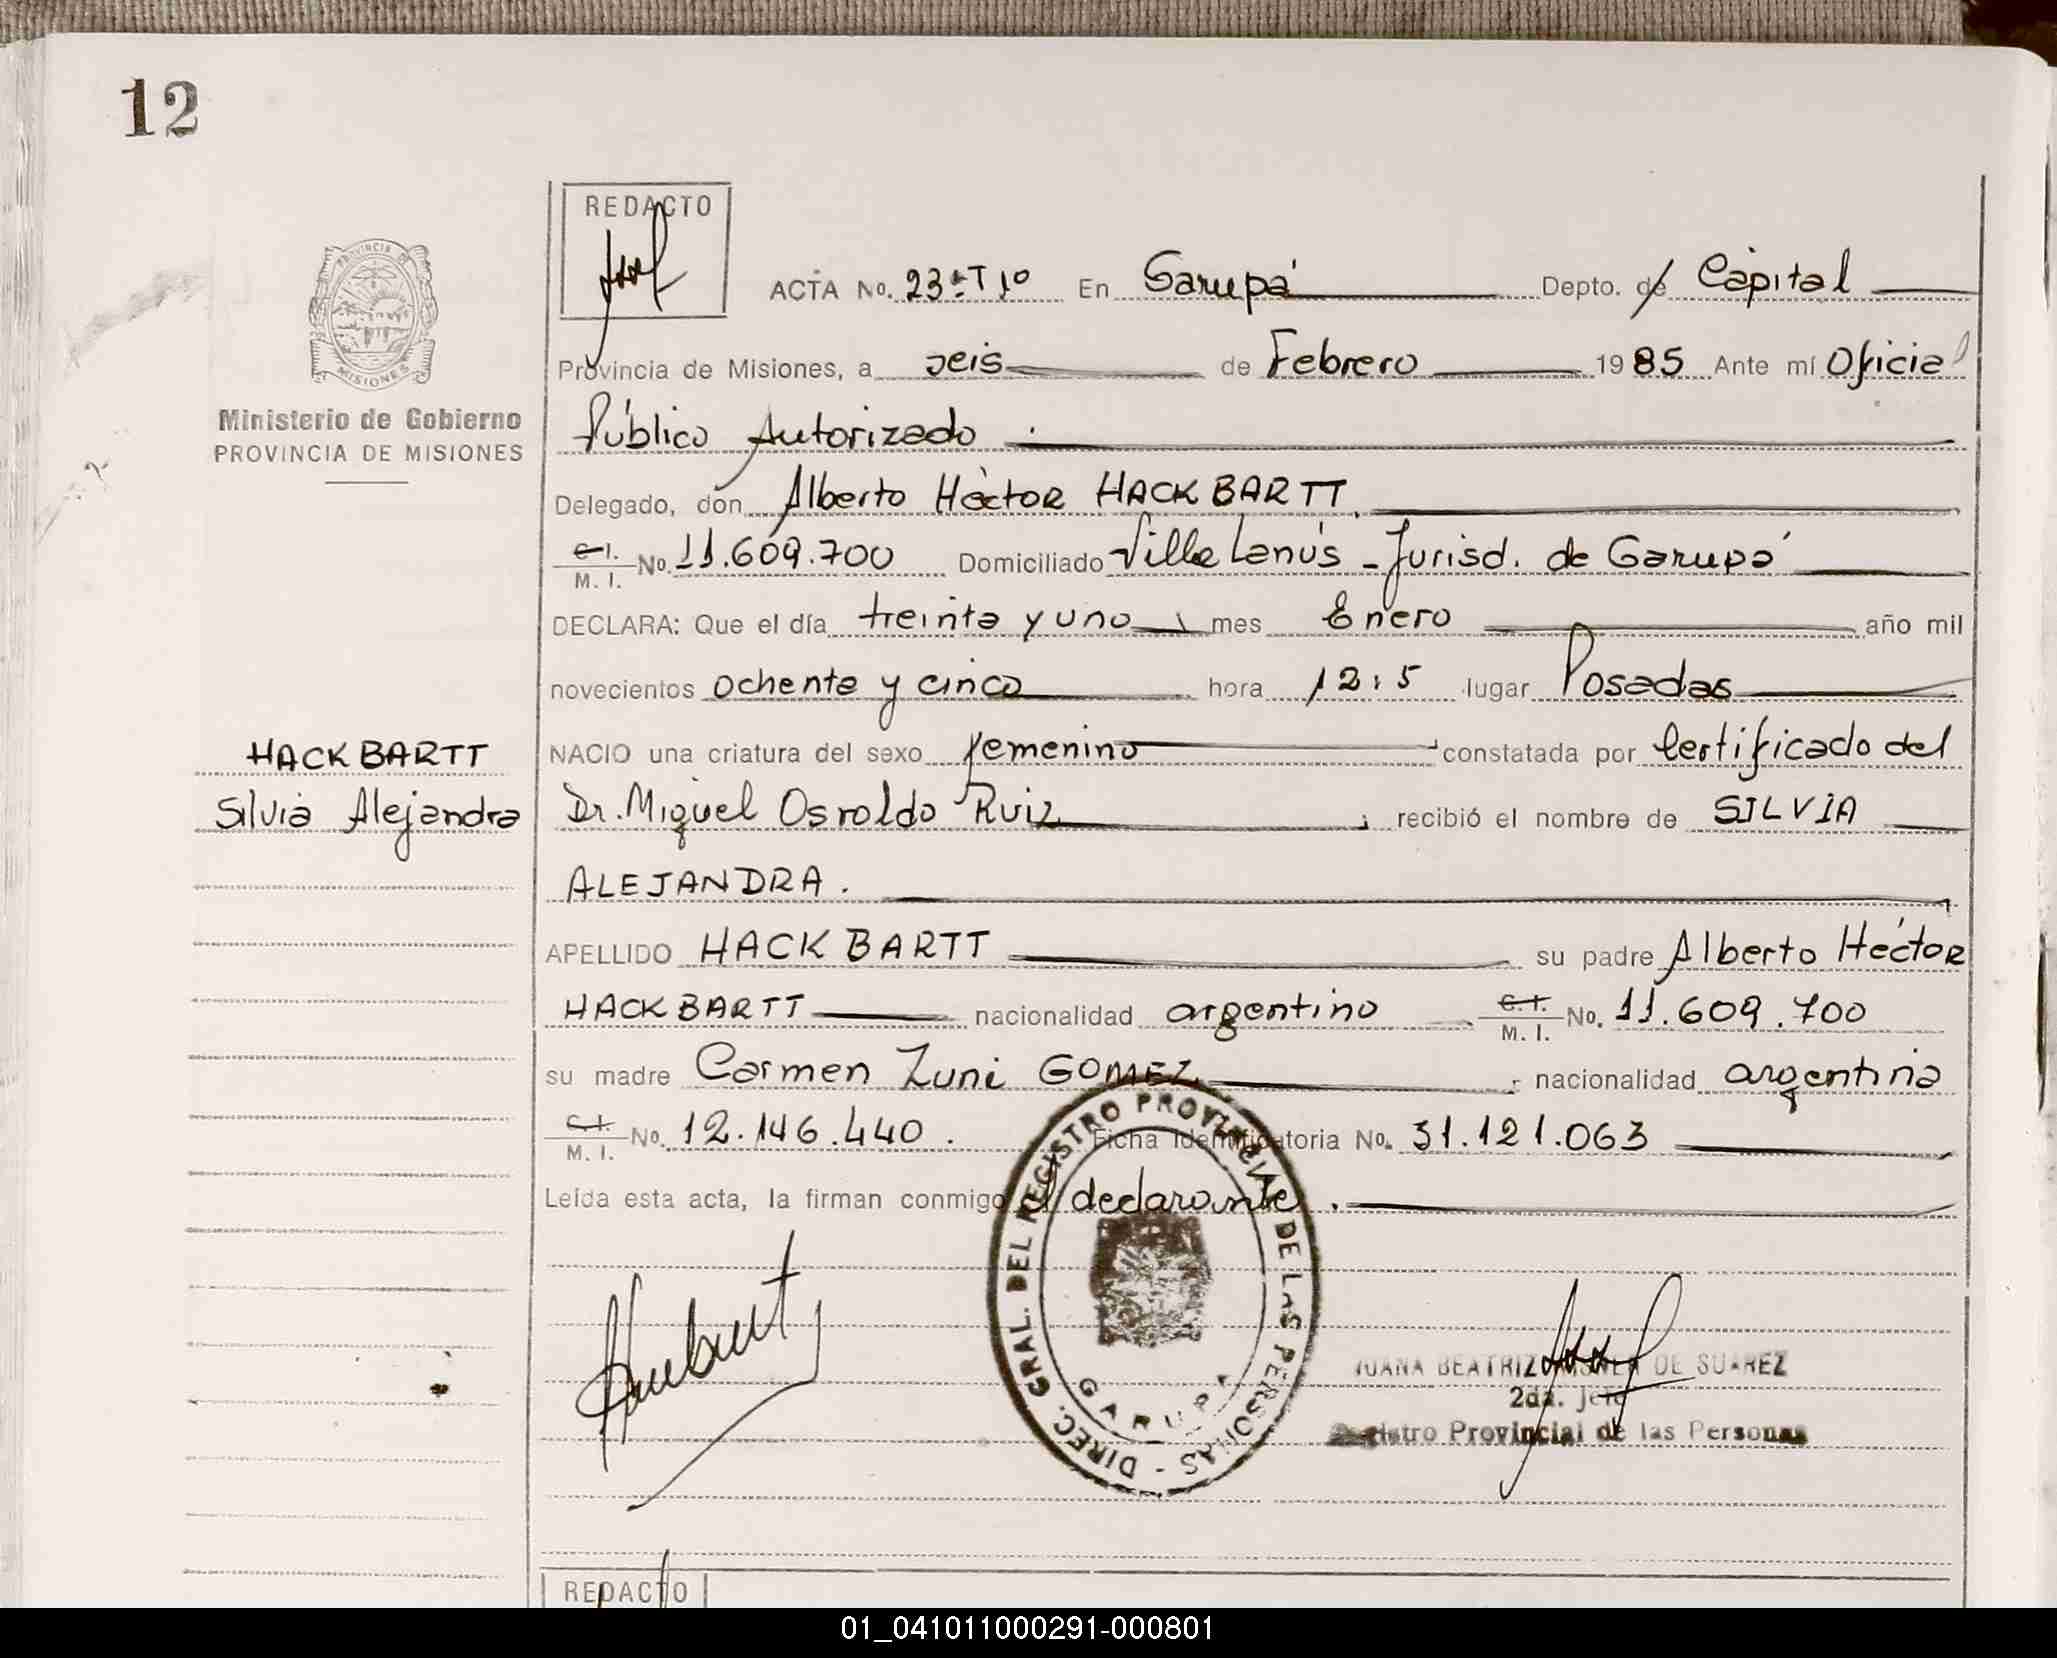 12
REDACTO
ACTA No. 23 - Tº 1º En Garupá Depto. de Capital
Provincia de Misiones, a seis de Febrero 1985 Ante mí Oficial
Público Autorizado
Delegado, don Alberto Héctor HACKBARTT
C.I. M.I. No. 11.609.700 Domiciliado Villa Lanús - Jurisd. de Garupá
DECLARA: Que el día treinta y uno mes Enero año mil
novecientos ochenta y cinco hora 12:5 lugar Posadas
NACIO una criatura del sexo femenino constatada por Certificado del
Dr. Miguel Osvaldo Ruiz recibió el nombre de SILVIA
ALEJANDRA.
APELLIDO HACKBARTT su padre Alberto Héctor
HACKBARTT nacionalidad argentino C.I. M.I. No. 11.609.700
su madre Carmen Zuni GOMEZ nacionalidad argentina
C.I. M.I. No. 12.146.440. Ficha Identificatoria No. 31.121.063
Leída esta acta, la firman conmigo el declarante.
PROVINCIA
MISIONES
Ministerio de Gobierno
PROVINCIA DE MISIONES
HACKBARTT
Silvia Alejandra
DIREC. GRAL. DEL REGISTRO PROVINCIAL DE LAS PERSONAS -
GARUPA
JUANA BEATRIZ DE SUAREZ
2da. Jefe
Registro Provincial de las Personas
REDACTO
01_041011000291-000801